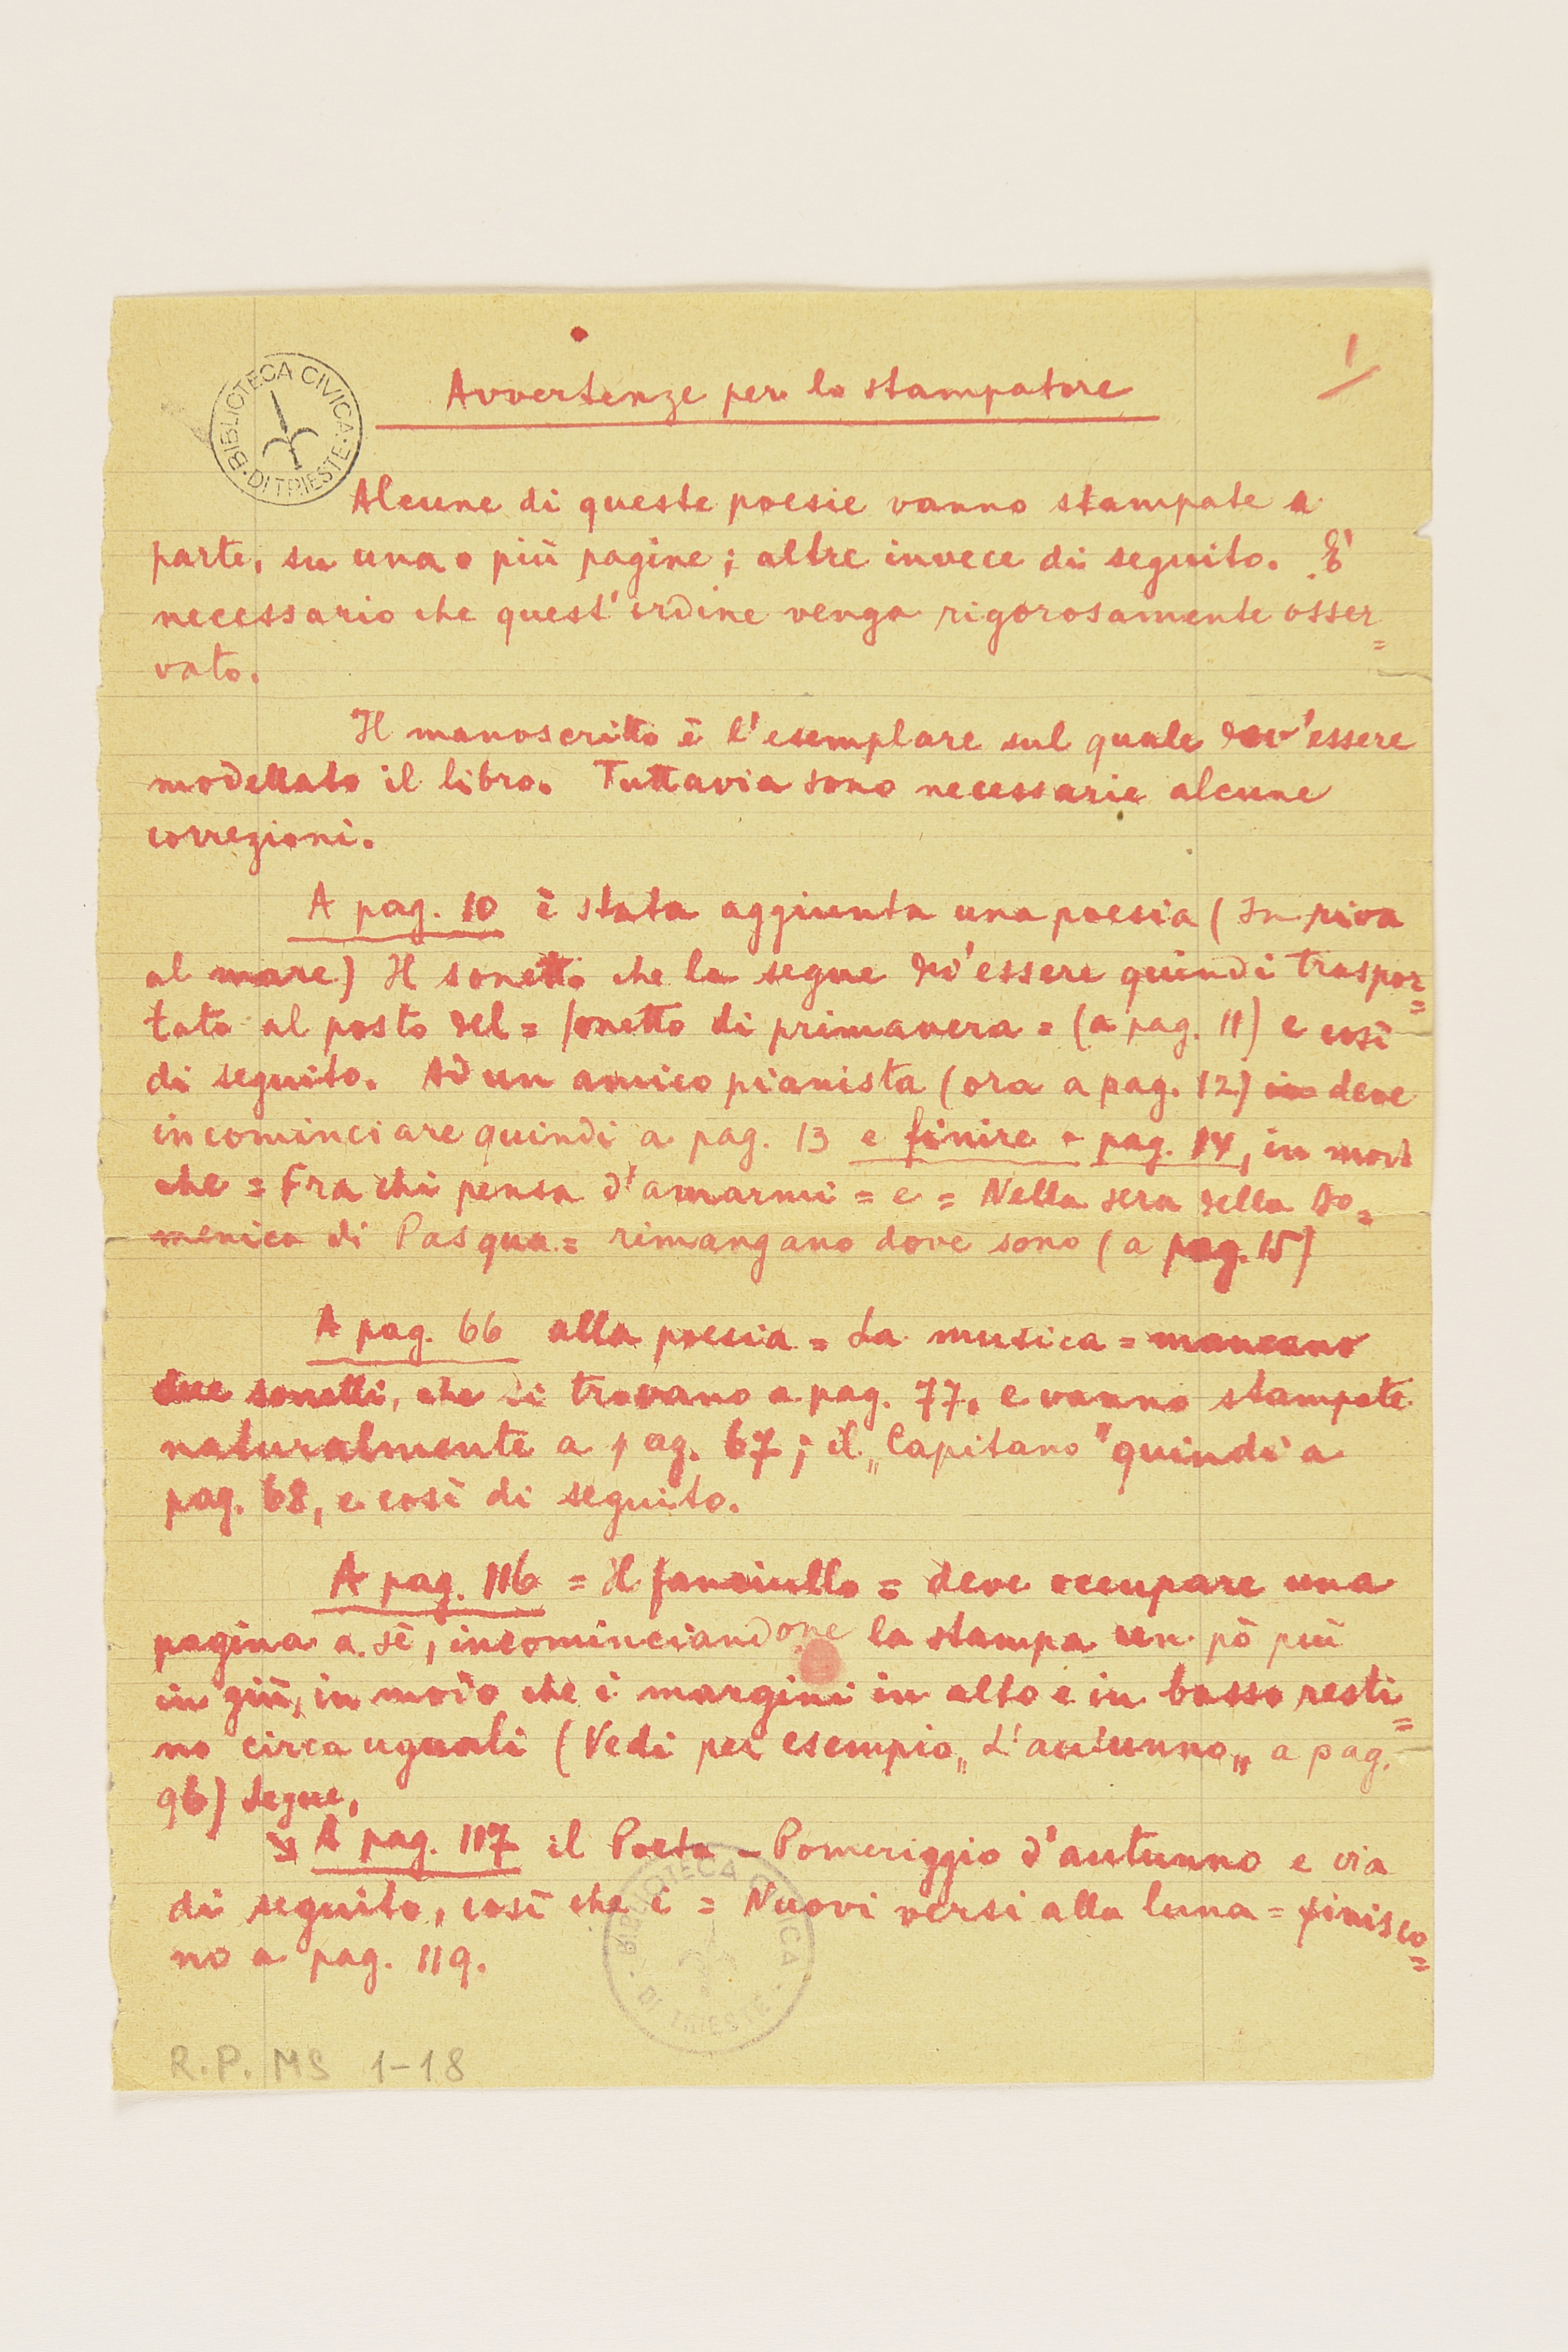 1
Avvertenze per lo stampatore
BIBLIOTECA CIVICA · DI TRIESTE ·
Alcune di queste poesie vanno stampate a
parte, su una o più pagine; altre invece di seguito. E'
necessario che quest'ordine venga rigorosamente osser=
vato.
Il manoscritto è l'esemplare sul quale dev'essere
modellato il libro. Tuttavia sono necessarie alcune
correzioni.
A pag. 10 è stata aggiunta una poesia (In riva
al mare) Il sonetto che la segue dev'essere quindi traspor=
tato al posto del = sonetto di primavera = (a pag. 11) e così
di seguito. Ad un amico pianista (ora a pag. 12) in deve
incominciare quindi a pag. 13 e finire a pag. 14, in modo
che = Fra chi pensa d'amarmi = e = Nella sera della Do=
menica di Pasqua = rimangano dove sono (a pag. 15)
A pag. 66 alla poesia = La musica = mancano
due sonetti, che si trovano a pag. 77, e vanno stampati
naturalmente a pag. 67; il „Capitano" quindi a
pag. 68, e così di seguito.
A pag. 116 = Il fanciullo = deve occupare una
pagina a sè, incominciandone la stampa un pò più
in giù, in modo che i margini in alto e in basso resti=
no circa uguali (Vedi per esempio „L'autunno„ a pag.
96) Segue,
A pag. 117 il Poeta - Pomeriggio d'autunno e via
di seguito, così che i = Nuovi versi alla luna = finisco=
no a pag. 119.
BIBLIOTECA CIVICA · DI TRIESTE ·
R.P. MS 1-18